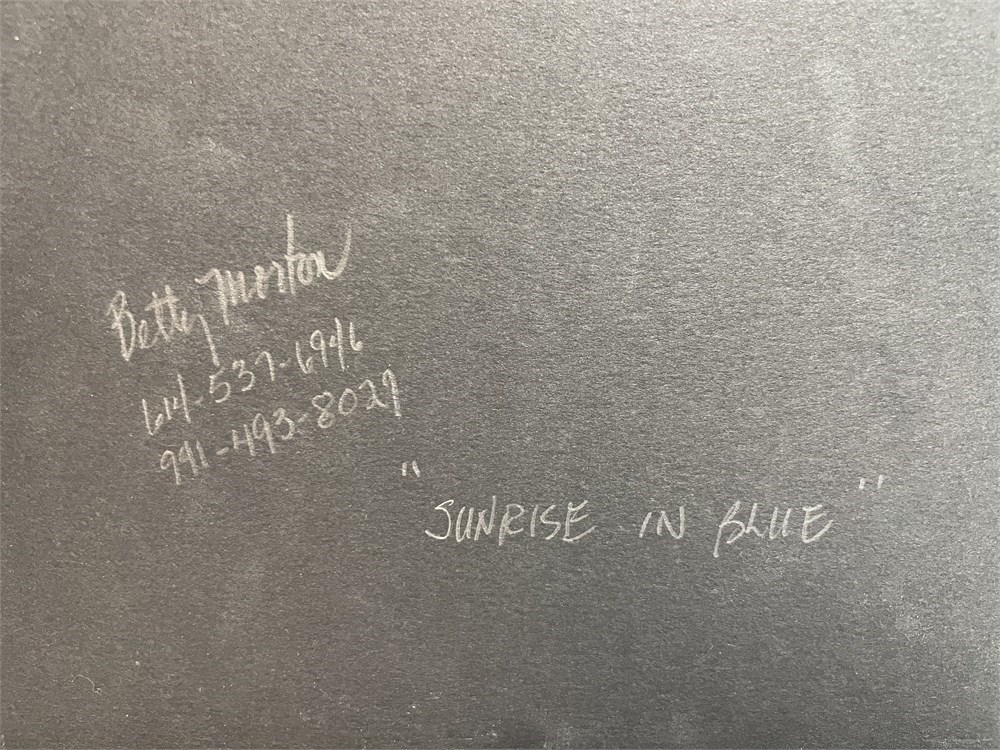 Betty Morton
614-537-6946
991-493-8027
"SUNRISE IN BLUE"